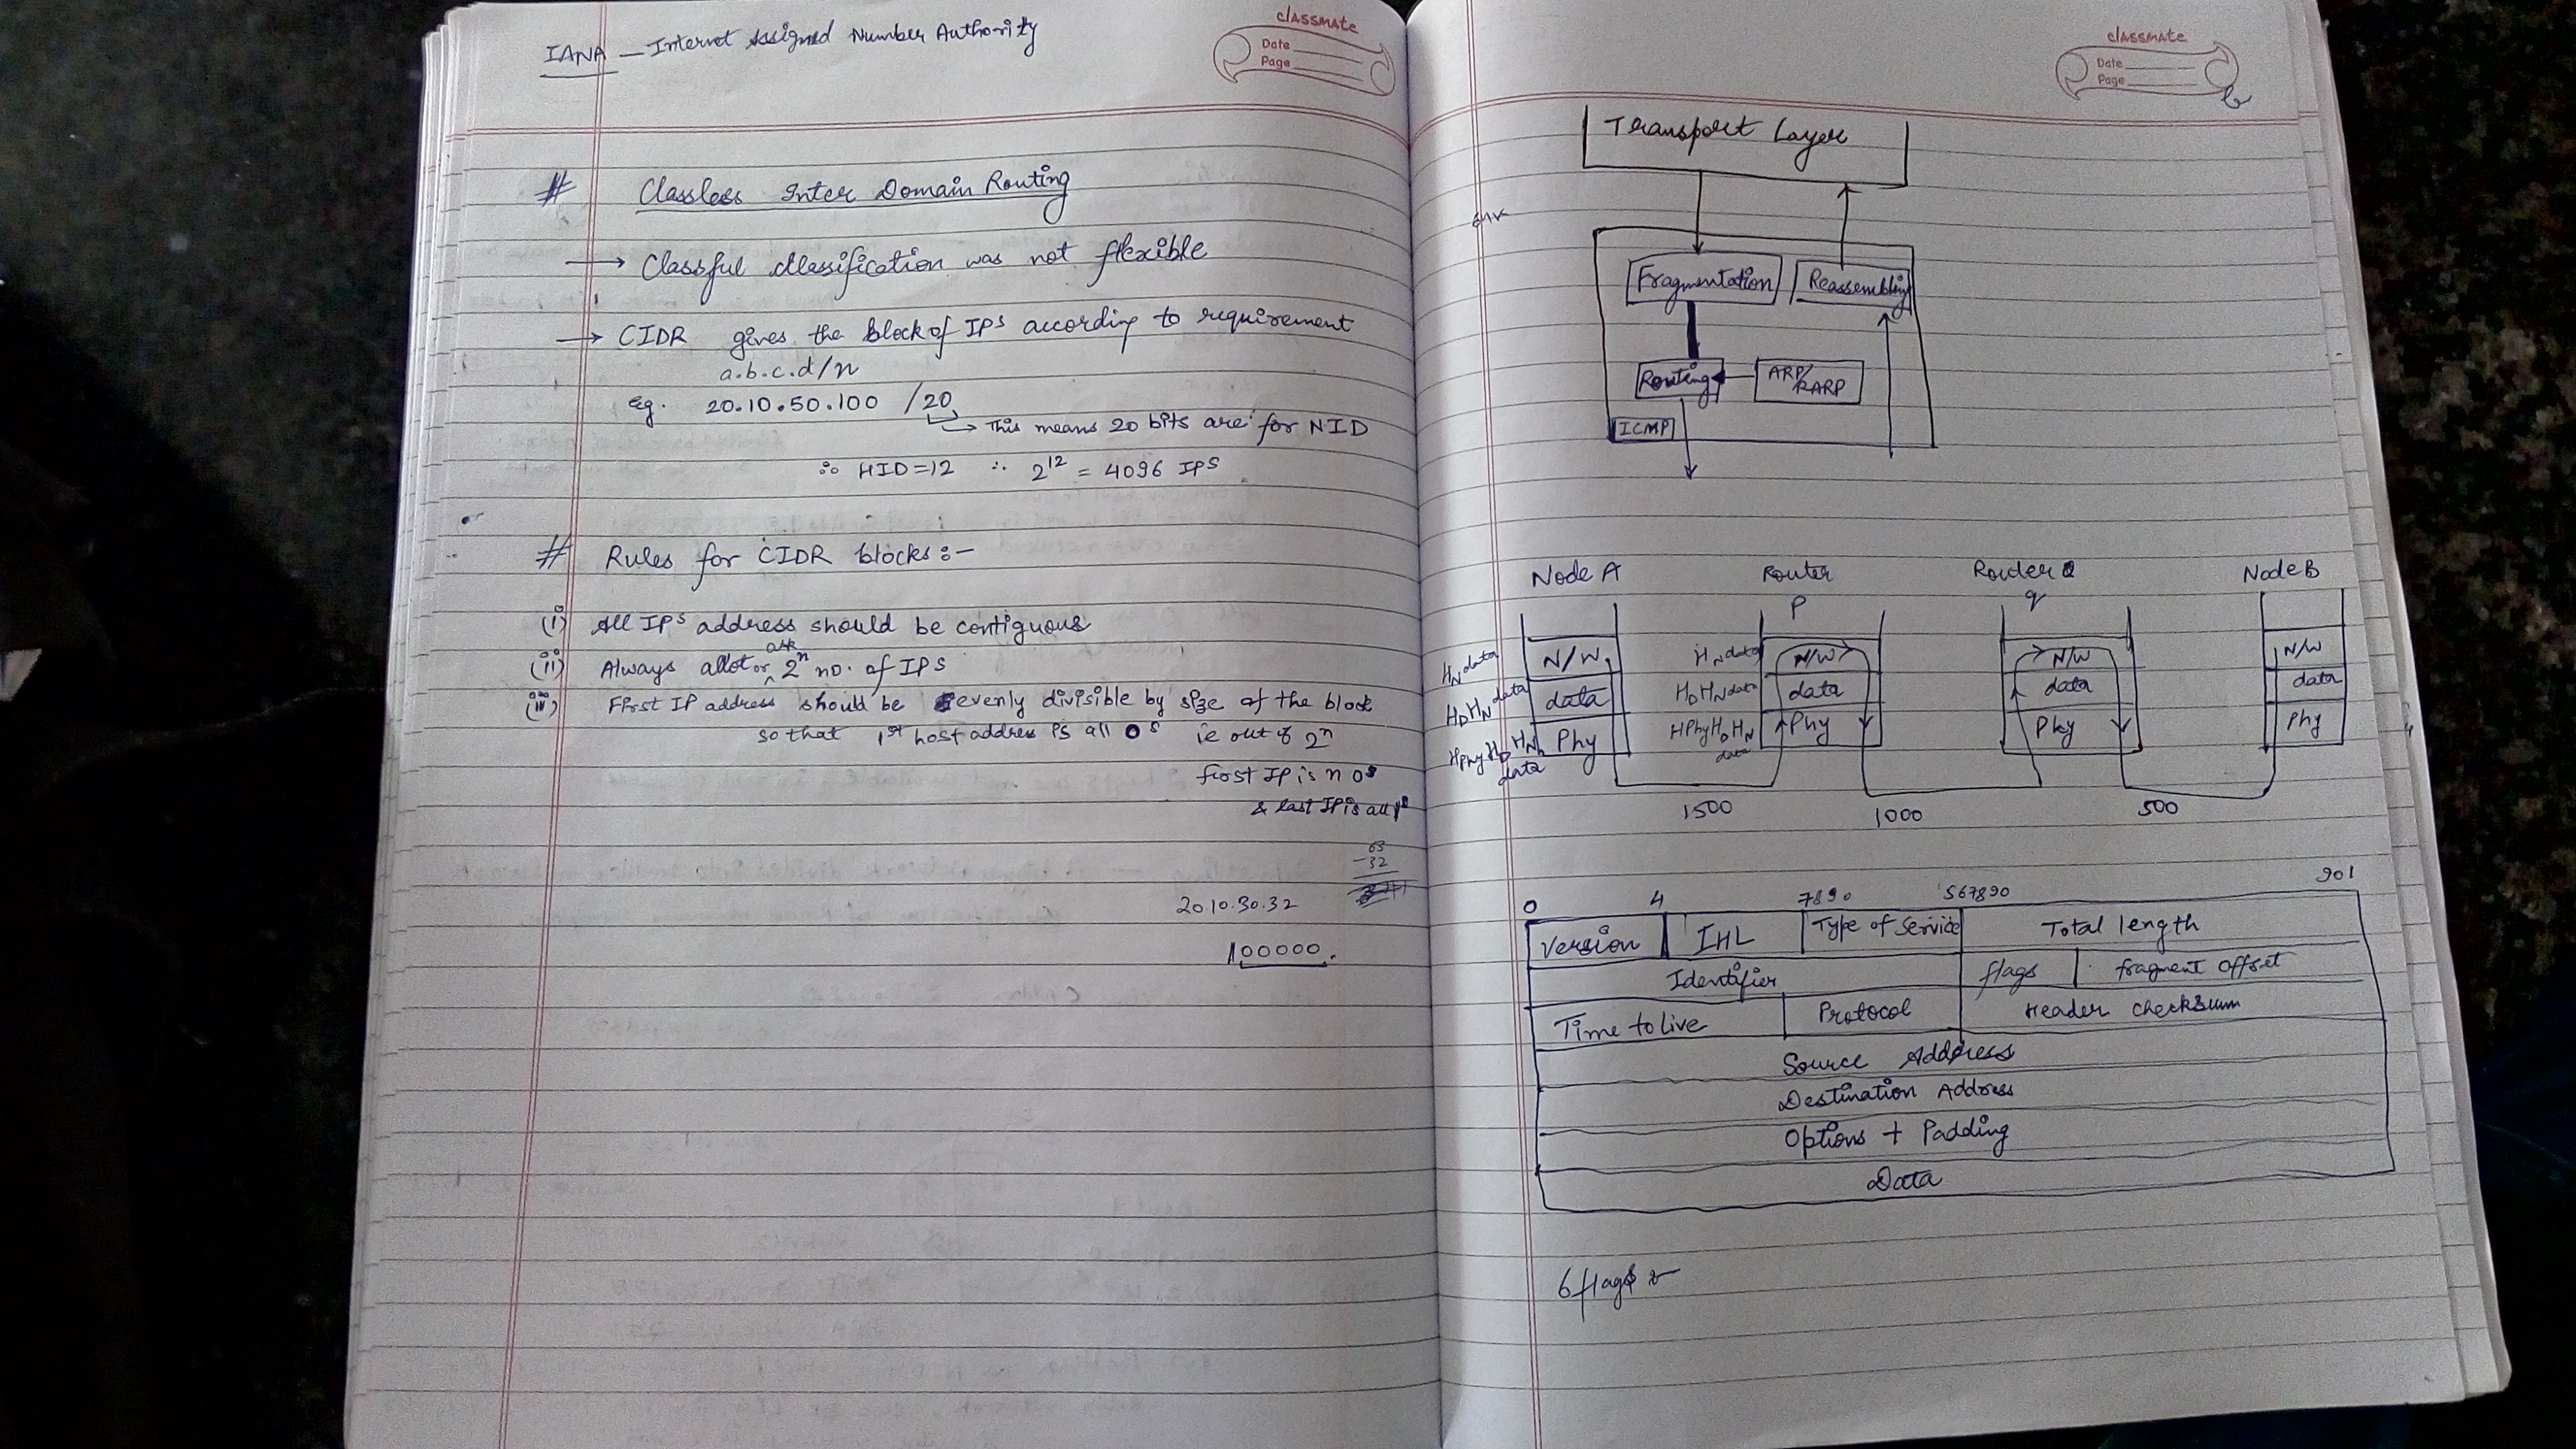 IANA — Internet Assigned Number Authority
classmate
Date
Page
# Classless Inter Domain Routing
→ Classful classification was not flexible
→ CIDR gives the block of IPs according to requirement
a.b.c.d/n
eg. 20.10.50.100 /20
→ This means 20 bits are for NID
∴ HID=12 ∴ 2^12 = 4096 IPS
# Rules for CIDR blocks :-
(i) All IPs address should be contiguous
(ii) Always allot or ask 2^n no. of IPS
(iii) First IP address should be evenly divisible by size of the block
so that 1st host address is all 0s ie out of 2^n
first IP is n 0s
& last IP is all 1s
63
-32
20.10.30.32
100000.
classmate
Date
Page
Transport Layer
Fragmentation
Reassembling
Routing
ARP/RARP
ICMP
Node A Router P Router Q q Node B
HN data N/W HN data N/W N/W N/W
HDHN data data HDHN data data data data
HPhyHDHN data Phy HPhyHDHN data Phy Phy Phy
1500 1000 500
0 4 7890 567890 901
Version IHL Type of Service Total length
Identifier flags fragment offset
Time to Live Protocol Header checksum
Source Address
Destination Address
Options + Padding
Data
6 flags